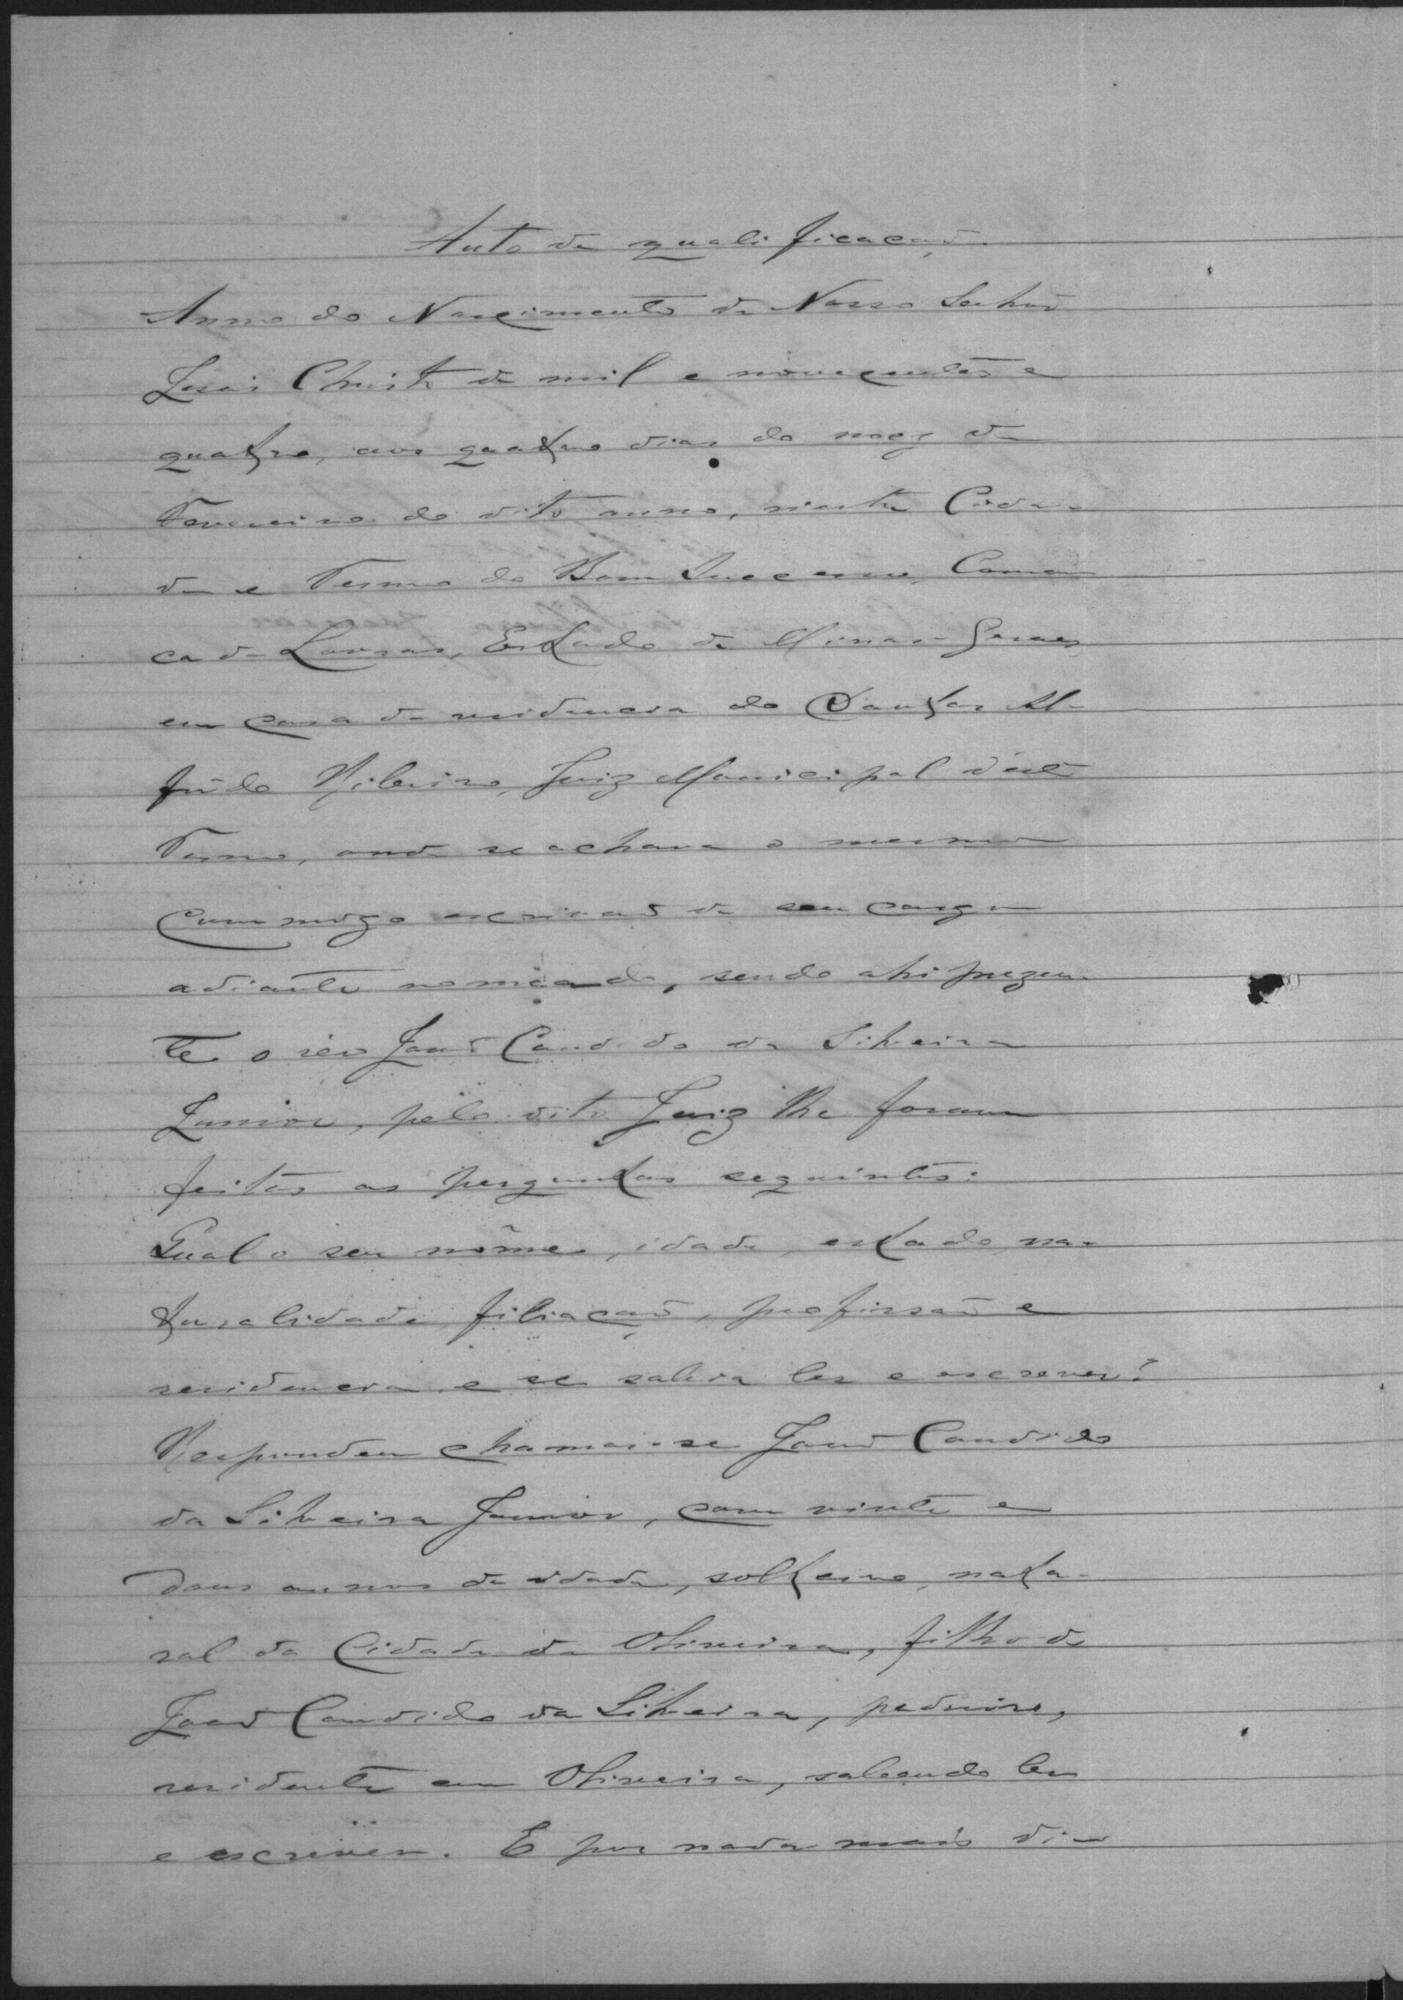 Auto de qualificação.
Anno do Nascimento de Nosso Senhor
Jesus Christo de mil e novecentos e
quatro, aos quatro dias do mez de
Fevereiro do dito anno, n'esta Cida-
de e Termo do Bom Successo, Comar-
ca de Lavras, Estado de Minas-Geraes,
em casa de residencia do Doutor Al-
fredo Ribeiro, Juiz Municipal d'este
Termo, onde se achava o mesmo
commigo escrivão de seu cargo
adiante nomeado, sendo ahi prezen-
te o reu João Candido da Silveira
Junior, pelo dito Juiz lhe foram
feitas as perguntas seguintes:
Qual o seu nome, idade, estado, na-
turalidade, filiação, profissão e
residencia e se sabia ler e escrever?
Respondeu chamar-se João Candido
da Silveira Junior, com vinte e
dous annos de idade, solteiro, natu-
ral da Cidade da Oliveira, filho de
João Candido da Silveira, pedreiro,
residente em Oliveira, sabendo ler
e escrever. E por nada mais di-